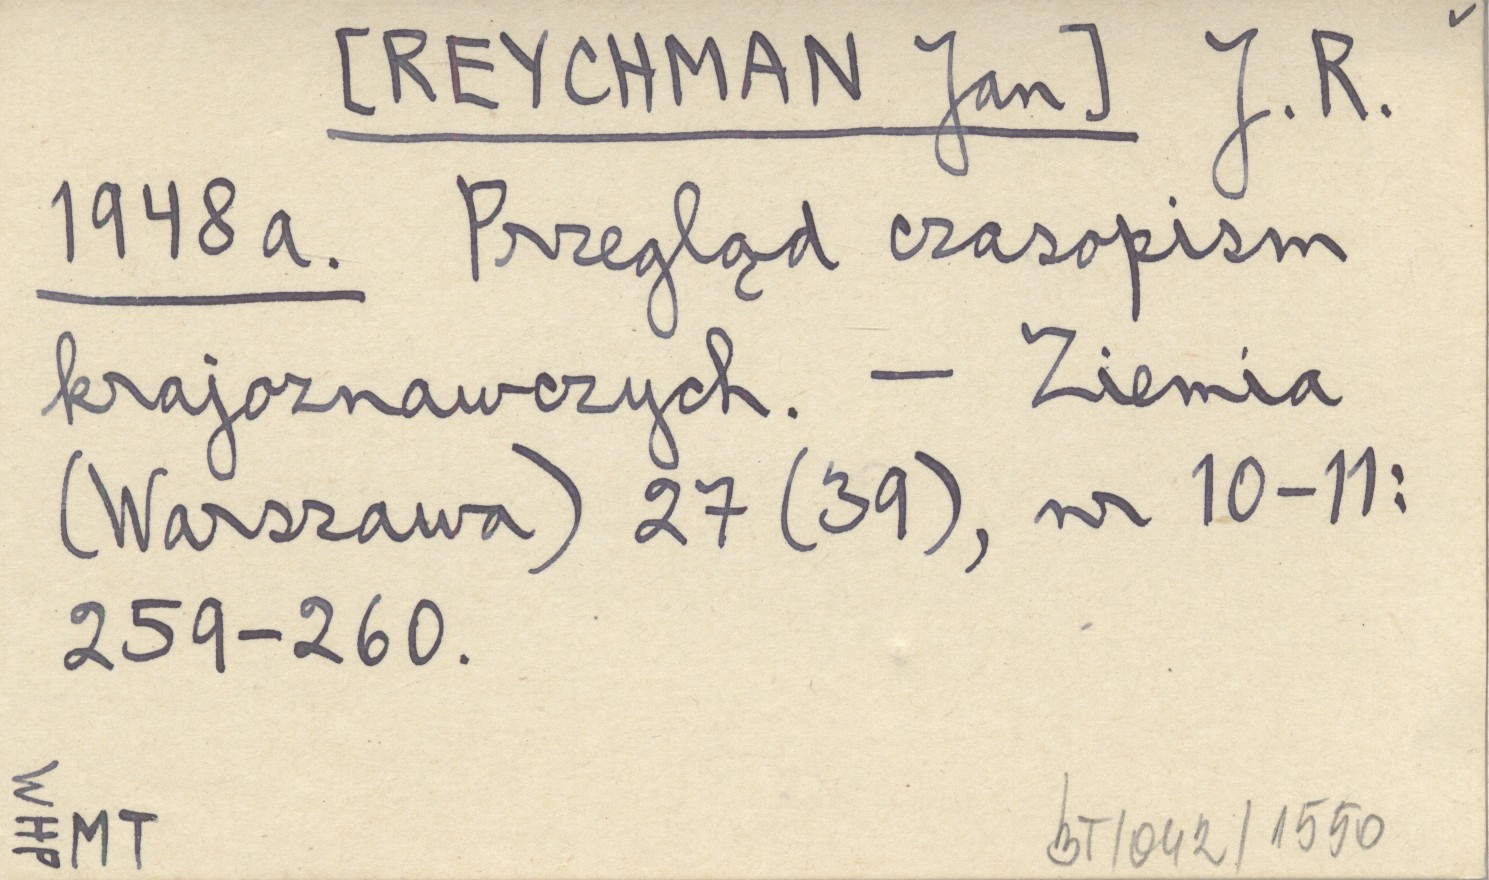 [REYCHMAN Jan] J. R.
1948a. Przegląd czasopism
krajoznawczych. — Ziemia
(Warszawa) 27 (39), nr 10-11:
259-260.
WHP
MT
BT/042/1550